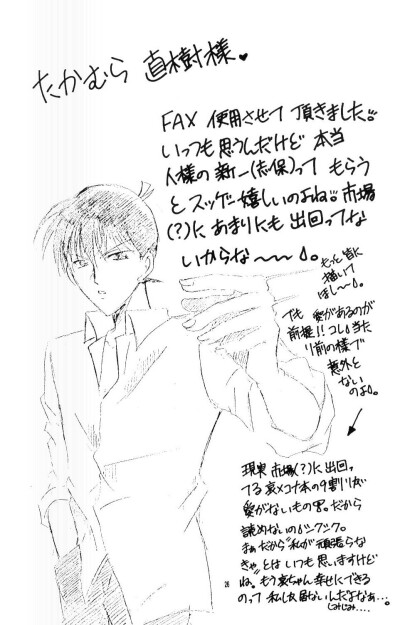 たかむら 直樹様♥
FAX 使用させて 頂きました。
いつも思うんだけど 本当
人様の新一(志保)って もらう
とスッゲー嬉しいのよね。市場
(?)に あまりにも 出回ってな
いからな〜〜。
もっと皆に
描いて
ほし〜。
でも 愛があるのが
前提!! コレ当た
り前の様で
意外と
ないのよ。
現実 市場(?)に 出回っ
てる哀×コナ本の9割りが
愛がないもの
だから
読めないの
まぁ だから“私が 頑張らな
きゃ”とは いつも 思いますけど
ね。もう哀ちゃん 幸せにできる
のって 私しか居ないんだよなぁ…。
しみじみ…。
28